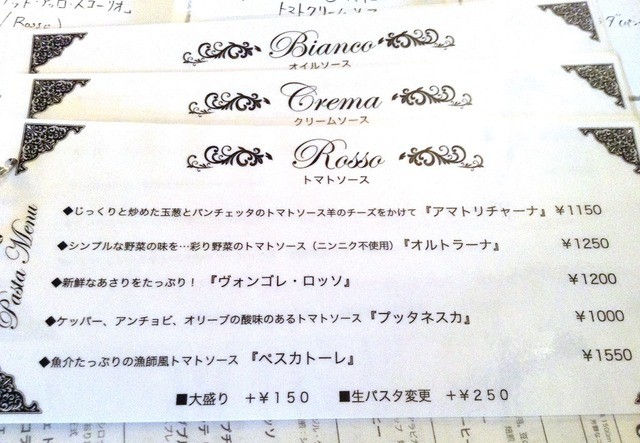 トマトクリームソース
Rosso)
Bianco
オイルソース
Crema
クリームソース
Rosso
トマトソース
◆じっくりと炒めた玉葱とパンチェッタのトマトソース羊のチーズをかけて『アマトリチャーナ』¥1150
◆シンプルな野菜の味を…彩り野菜のトマトソース（ニンニク不使用）『オルトラーナ』 ¥1250
◆新鮮なあさりをたっぷり！『ヴォンゴレ・ロッソ』 ¥1200
◆ケッパー、アンチョビ、オリーブの酸味のあるトマトソース『プッタネスカ』 ¥1000
◆魚介たっぷりの漁師風トマトソース『ペスカトーレ』 ¥1550
■大盛り ＋¥150 ■生パスタ変更 ＋¥250
Pasta Menu